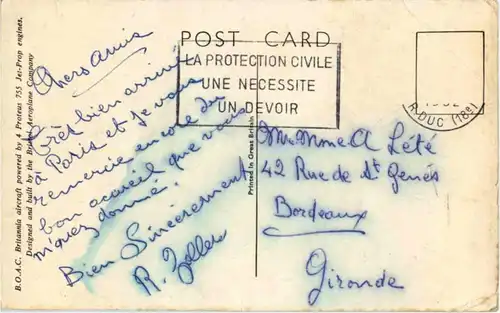 POST CARD
LA PROTECTION CIVILE
UNE NECESSITE
UN DEVOIR
R.DUC (18e)
B.O.A.C. Britannia aircraft powered by 4 Proteus 755 Jet-Prop engines.
Designed and built by the Bristol Aeroplane Company
Chers Amis
très bien arrivé
à Paris et je vous
remercie encore du
bon accueil que vous
m'avez donné.
Bien Sincèrement
Printed in Great Britain
Mr Mme A Lété
42 Rue de St Genés
Bordeaux
Gironde